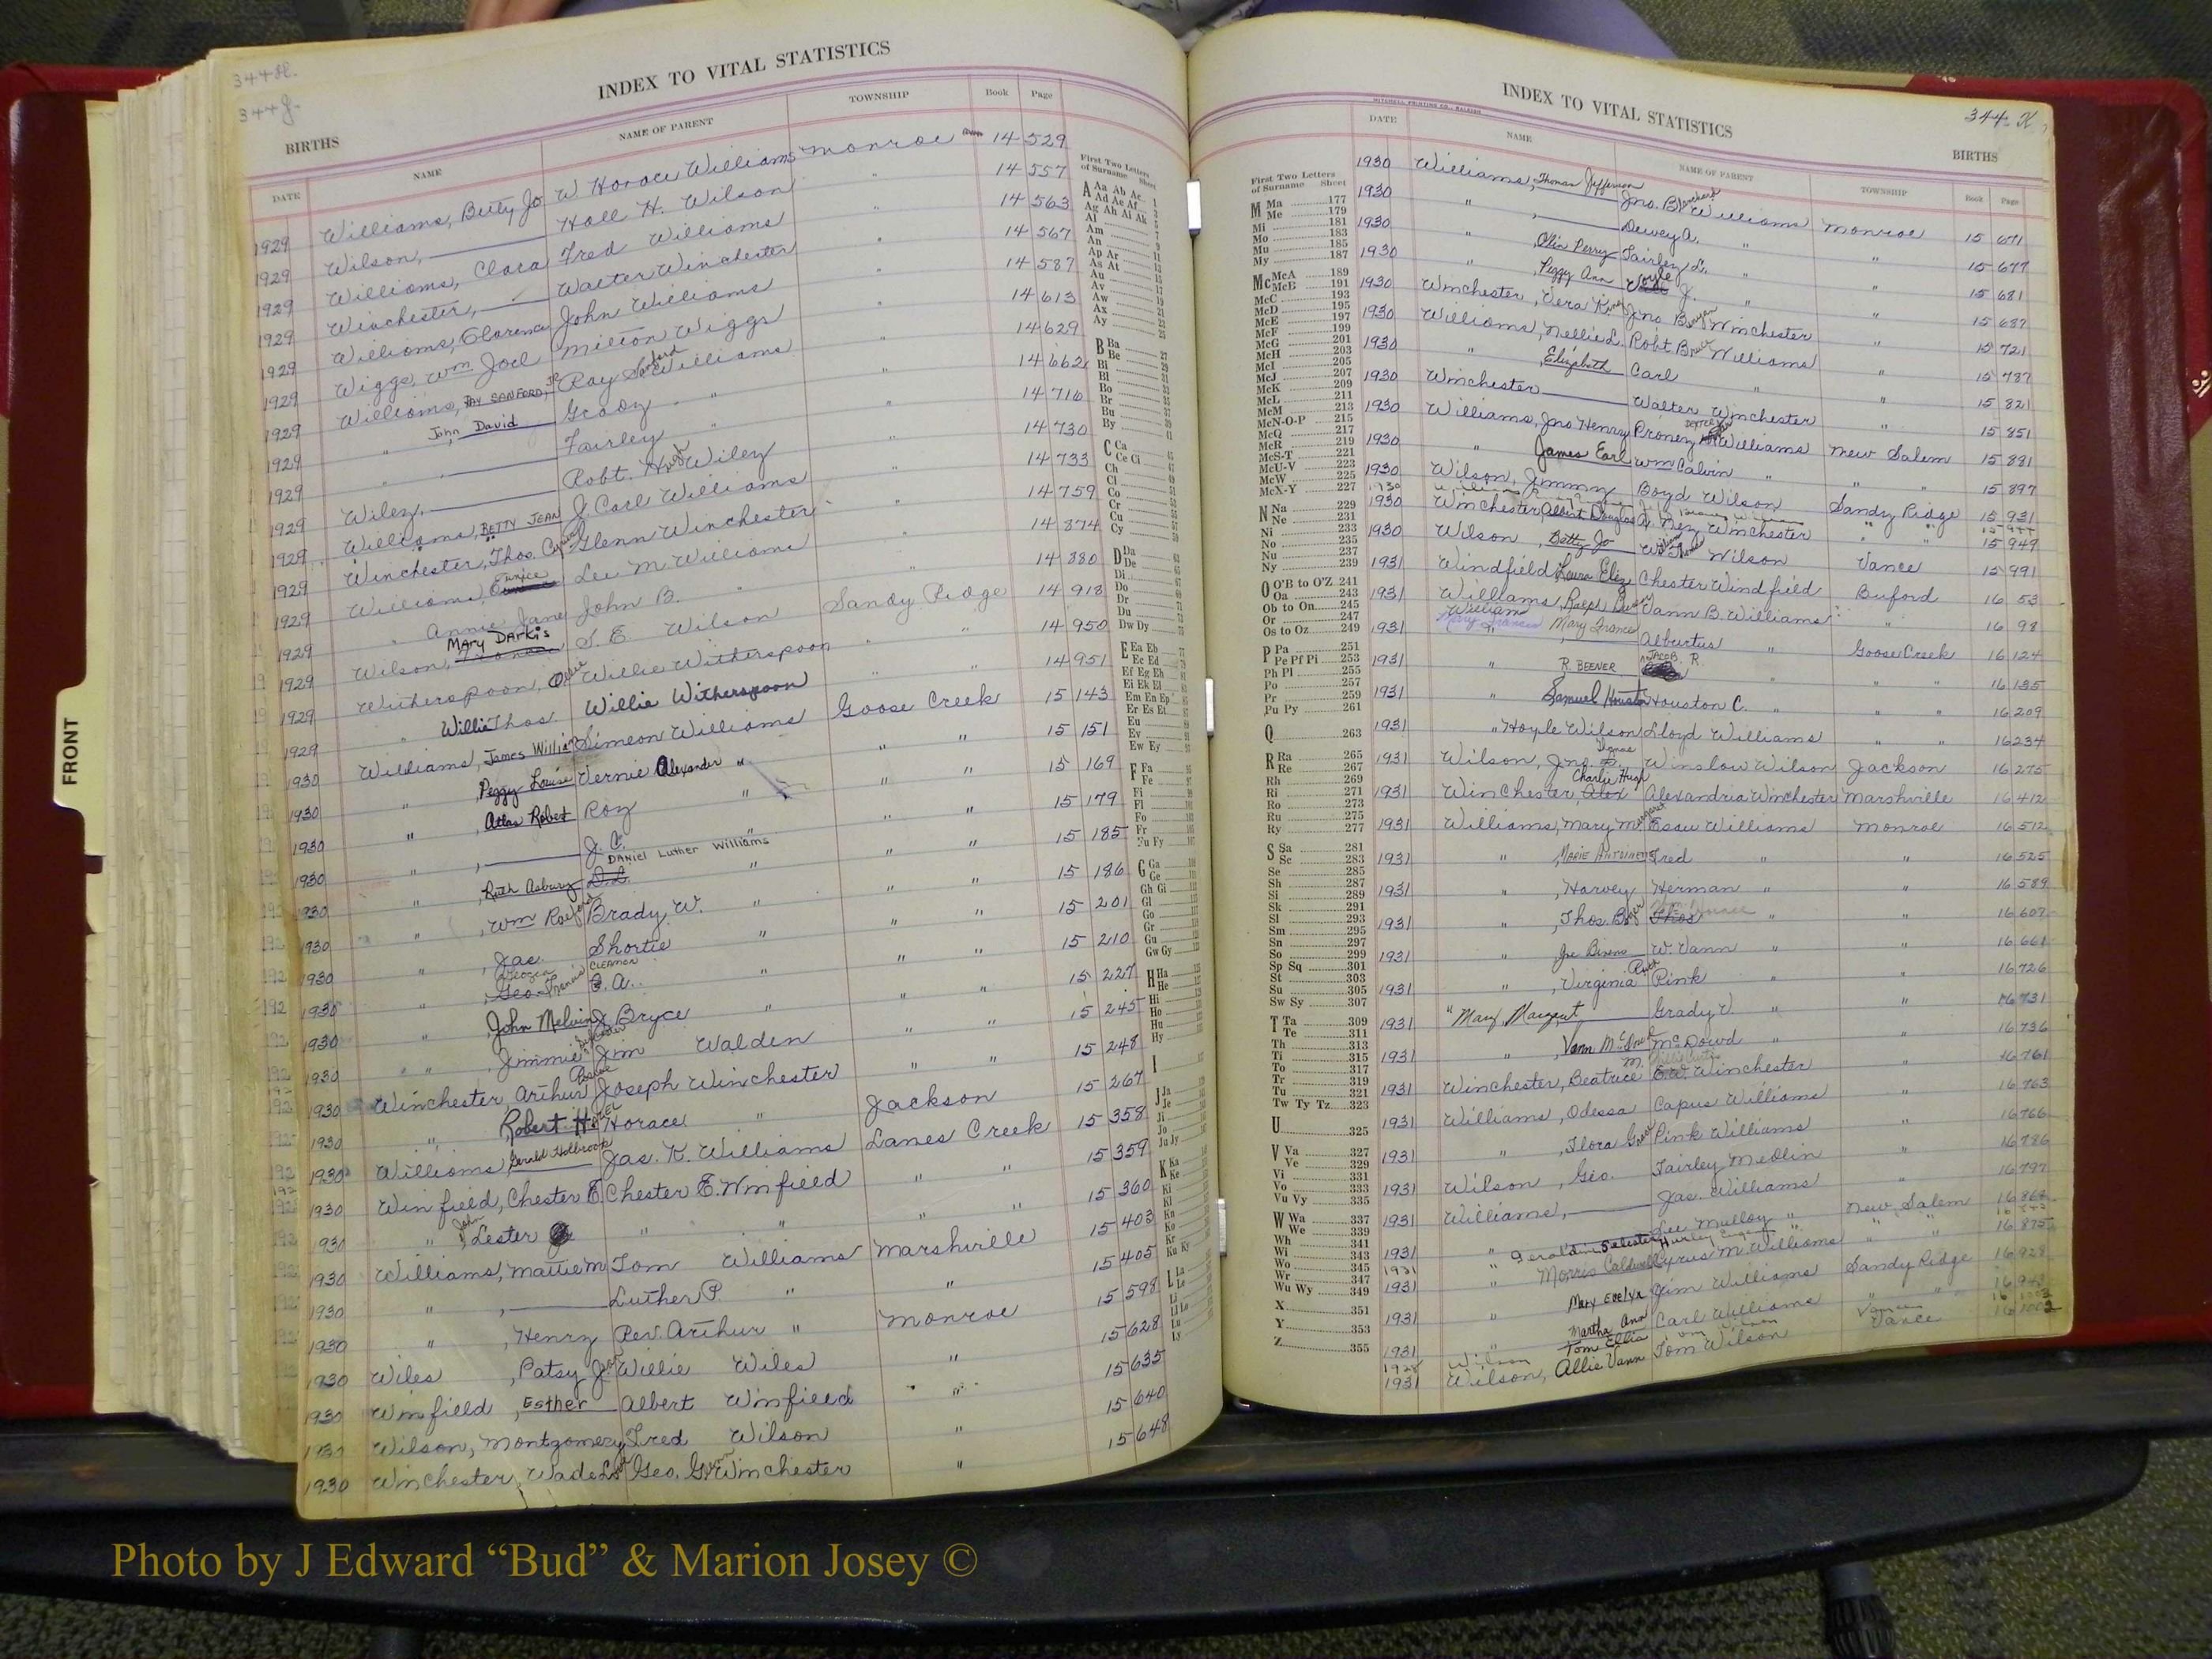 344 H.
344 J.
INDEX TO VITAL STATISTICS
BIRTHS
DATE NAME NAME OF PARENT TOWNSHIP Book Page
1929 Williams, Betty Jo W Horace Williams Monroe 14 529
1929 Wilson, Hall H. Wilson " 14 557
1929 Williams, Clara Fred Williams " 14 563
1929 Winchester, Walter Winchester " 14 567
1929 Williams, Clarence John Williams " 14 587
1929 Wiggs, Wm Joel Milton Wiggs " 14 613
1929 Williams, RAY SANFORD, JR Ray Sanford Williams " 14 629
1929 " John David Grady " " 14 662
1929 " Fairley " " 14 716
1929 Wiley, Robt. Hugh Wiley " 14 730
1929 Williams, BETTY JEAN J. Carl Williams " 14 733
1929 Winchester, Thos. Glenn Winchester " 14 759
1929 Williams, Eunice Lee M Williams " 14 874
1929 " Annie Jane John B. " " 14 880
1929 Wilson, MARY DARKIS J. E. Wilson Sandy Ridge 14 918
1929 Witherspoon, Willie Witherspoon " " 14 950
1929 " Willie Thos. Willie Witherspoon " " 14 951
1930 Williams, James William Simeon Williams Goose Creek 15 143
1930 " , Peggy Louise Vernie Alexander " " " 15 151
1930 " , Atlas Robert Roy " " " 15 169
1930 " , J. C. " " " 15 179
DANIEL Luther Williams
1930 " , Ruth Asbury D.L. " " " 15 185
1930 " , Wm Brady W. " " " 15 186
1930 " , Jac. Shortie " " " 15 201
CLEAMON
1930 " , Geo. A. " " " 15 210
1930 " , John Melvin J Bryce " " " 15 227
1930 " " , Jimmie Jim Walden " " 15 245
1930 Winchester, Arthur Roscoe Joseph Winchester " " 15 248
1930 " , Robert H. Horace " Jackson 15 267
1930 Williams, Gerald Holbrook Jas. K. Williams Lanes Creek 15 358
1930 Winfield, Chester E. Chester E. Winfield " " 15 359
1930 " John Lester " " " " 15 360
1930 Williams, Mattie M Tom Williams Marshville 15 403
1930 " , Luther P. " " 15 405
1930 " , Henry Rev. Arthur " Monroe 15 598
1930 Wiles, Patsy Jean Willie Wiles " 15 628
1930 Winfield, Esther Albert Winfield " 15 635
Wilson, Montgomery Fred Wilson " 15 640
1930 Winchester, Wade Geo. Winchester " 15 648
First Two Letters
of Surname Sheet
A Aa Ab Ac
Ad Ae Af
Ag Ah Ai Ak
Al
Am
An
Ap Ar
As At
Au
Av
Aw
Ax
Ay
B Ba
Be
Bi
Bl
Bo
Br
Bu
By
C Ca
Ce Ci
Ch
Cl
Co
Cr
Cu
Cy
D Da
De
Di
Do
Dr
Du
Dw Dy
E Ea Eb
Ec Ed
Ef Eg Eh
Ei Ek El
Em En Ep
Er Es Et
Eu
Ev
Ew Ey
F Fa
Fe
Fi
Fl
Fo
Fr
Fu Fy
G Ga
Ge
Gh Gi
Gl
Go
Gr
Gu
Gw Gy
H Ha
He
Hi
Ho
Hu
Hy
I
J Ja
Je
Ji
Jo
Ju Jy
K Ka
Ke
Ki
Kl
Kn
Ko
Kr
Ku Ky
L La
Le
Li
Ll Lo
Lu
Ly
MITCHELL PRINTING CO., RALEIGH
INDEX TO VITAL STATISTICS
344 K
BIRTHS
First Two Letters
of Surname Sheet
M Ma 177
Me 179
Mi 181
Mo 183
Mu 185
My 187
Mc McA 189
McB 191
McC 193
McD 195
McE 197
McF 199
McG 201
McH 203
McI 205
McJ 207
McK 209
McL 211
McM 213
McN-O-P 215
McQ 217
McR 219
McS-T 221
McU-V 223
McW 225
McX-Y 227
N Na 229
Ne 231
Ni 233
No 235
Nu 237
Ny 239
O O'B to O'Z 241
Oa 243
Ob to On 245
Or 247
Os to Oz 249
P Pa 251
Pe Pf Pi 253
Ph Pl 255
Po 257
Pr 259
Pu Py 261
Q 263
R Ra 265
Re 267
Rh 269
Ri 271
Ro 273
Ru 275
Ry 277
S Sa 281
Sc 283
Se 285
Sh 287
Si 289
Sk 291
Sl 293
Sm 295
Sn 297
So 299
Sp Sq 301
St 303
Su 305
Sw Sy 307
T Ta 309
Te 311
Th 313
Ti 315
To 317
Tr 319
Tu 321
Tw Ty Tz 323
U 325
V Va 327
Ve 329
Vi 331
Vo 333
Vu Vy 335
W Wa 337
We 339
Wh 341
Wi 343
Wo 345
Wr 347
Wu Wy 349
X 351
Y 353
Z 355
DATE NAME NAME OF PARENT TOWNSHIP Book Page
1930 Williams, Thomas Jefferson Jno. B. Williams Monroe 15 671
1930 " , Dewey A. " " 15 677
1930 " , Olin Perry Fairley L. " " 15 681
1930 " , Peggy Ann J. " " 15 687
1930 Winchester, Vera King Jno Bryan Winchester " 15 721
1930 Williams, Nellie L. Robt Williams " 15 787
1930 " , Elizabeth Carl " " 15 821
1930 Winchester Walter Winchester " 15 851
1930 Williams, Jno Henry Williams New Salem 15 891
1930 " James Earl Wm Calvin " " " 15 897
1930 Wilson, Jimmy Boyd Wilson Sandy Ridge 15 931
1930 Winchester, Albert Douglas A. Ney Winchester " " 15 949
1930 Wilson, Betty Jo Wilson Vance 15 991
1931 Windfield, Laura Eliz Chester Windfield Buford 16 53
1931 Williams, Ralph Vann B. Williams " 16 98
Williams
1931 Mary Frances Mary Frances Albertus " Goose Creek 16 124
1931 " R. BEENER JACOB R. " " " 16 135
1931 " Samuel Houston Houston C. " " " 16 209
1931 " Hoyle Wilson Lloyd Williams " " 16 234
1931 Wilson, Jno. Winslow Wilson Jackson 16 275
Charlie Hugh
1931 Winchester, Alex Alexandria Winchester Marshville 16 412
1931 Williams, Mary Margaret Esau Williams Monroe 16 512
1931 " , MARIE ANTOINETTE Fred " " 16 525
1931 " , Harvey Herman " " 16 589
1931 " , Thos. Thos " " 16 607
1931 " , W. Vann " " 16 661
1931 " , Virginia Pink " " 16 726
1931 " Mary Margaret Grady V. " " 16 731
1931 " , Vann McDowd " " 16 736
1931 Winchester, Beatrice M. E.W. Winchester " 16 761
1931 Williams, Odessa Capus Williams " 16 763
1931 " , Flora Grace Pink Williams " 16 766
1931 Wilson, Geo. Fairley Medlin " 16 786
1931 Williams, Jas. Williams " 16 797
1931 " Geraldine Lee Mulloy " New Salem
1931 " Morris Caldwell Cyrus M. Williams " " 16 875
1931 " Mary Evelyn Jim Williams Sandy Ridge 16 928
1931 " Martha Ann Carl Williams " "
1928 Wilson Tom Ellis Wilson Vance
1931 Wilson, Allie Vann Tom Wilson Vance 16 1002
FRONT
Photo by J Edward “Bud” & Marion Josey ©